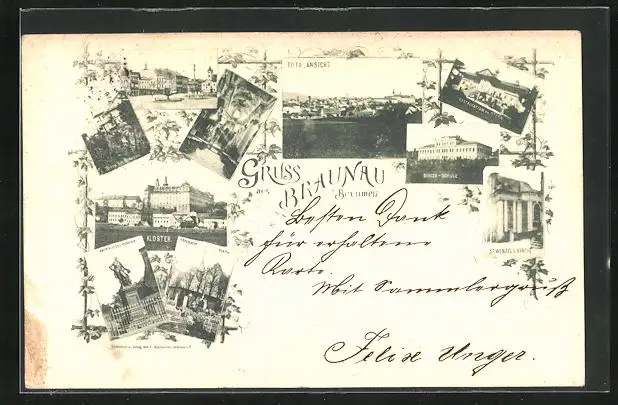 TOTALANSICHT
GRUSS
aus BRAUNAU
i. Böhmen
BÜRGER-SCHULE
ST. WENZELS KIRCHE
KLOSTER.
Besten Dank
für erhaltene
Karte.
Mit Sammlergruß
Felix Unger.